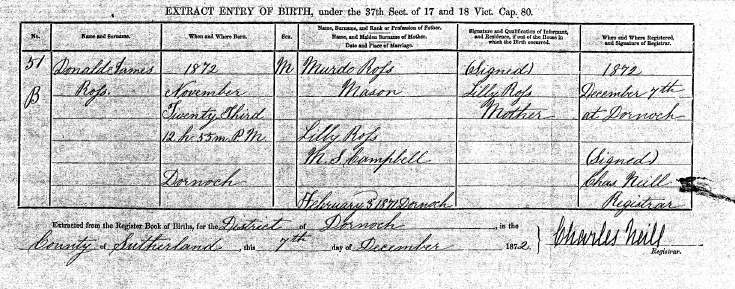 EXTRACT ENTRY OF BIRTH, under the 37th Sect. of 17 and 18 Vict. Cap. 80.
No. Name and Surname. When and Where Born. Sex. Name, Surname, and Rank or Profession of Father. Name, and Maiden Surname of Mother. Date and Place of Marriage. Signature and Qualification of Informant, and Residence, if out of the House in which the Birth occurred. When and Where Registered, and Signature of Registrar.
51 Donald James 1872 M Murdo Ross (Signed) 1872
B Ross. November Mason Lilly Ross December 7th
Twenty Third Mother at Dornoch
12 h. 55 m. P.M. Lilly Ross
M.S. Campbell (Signed)
Dornoch Chas Neill
February 3 1871 Dornoch Registrar
Extracted from the Register Book of Births, for the District of Dornoch, in the
County of Sutherland, this 7th day of December 1872 Charles Neill
Registrar.